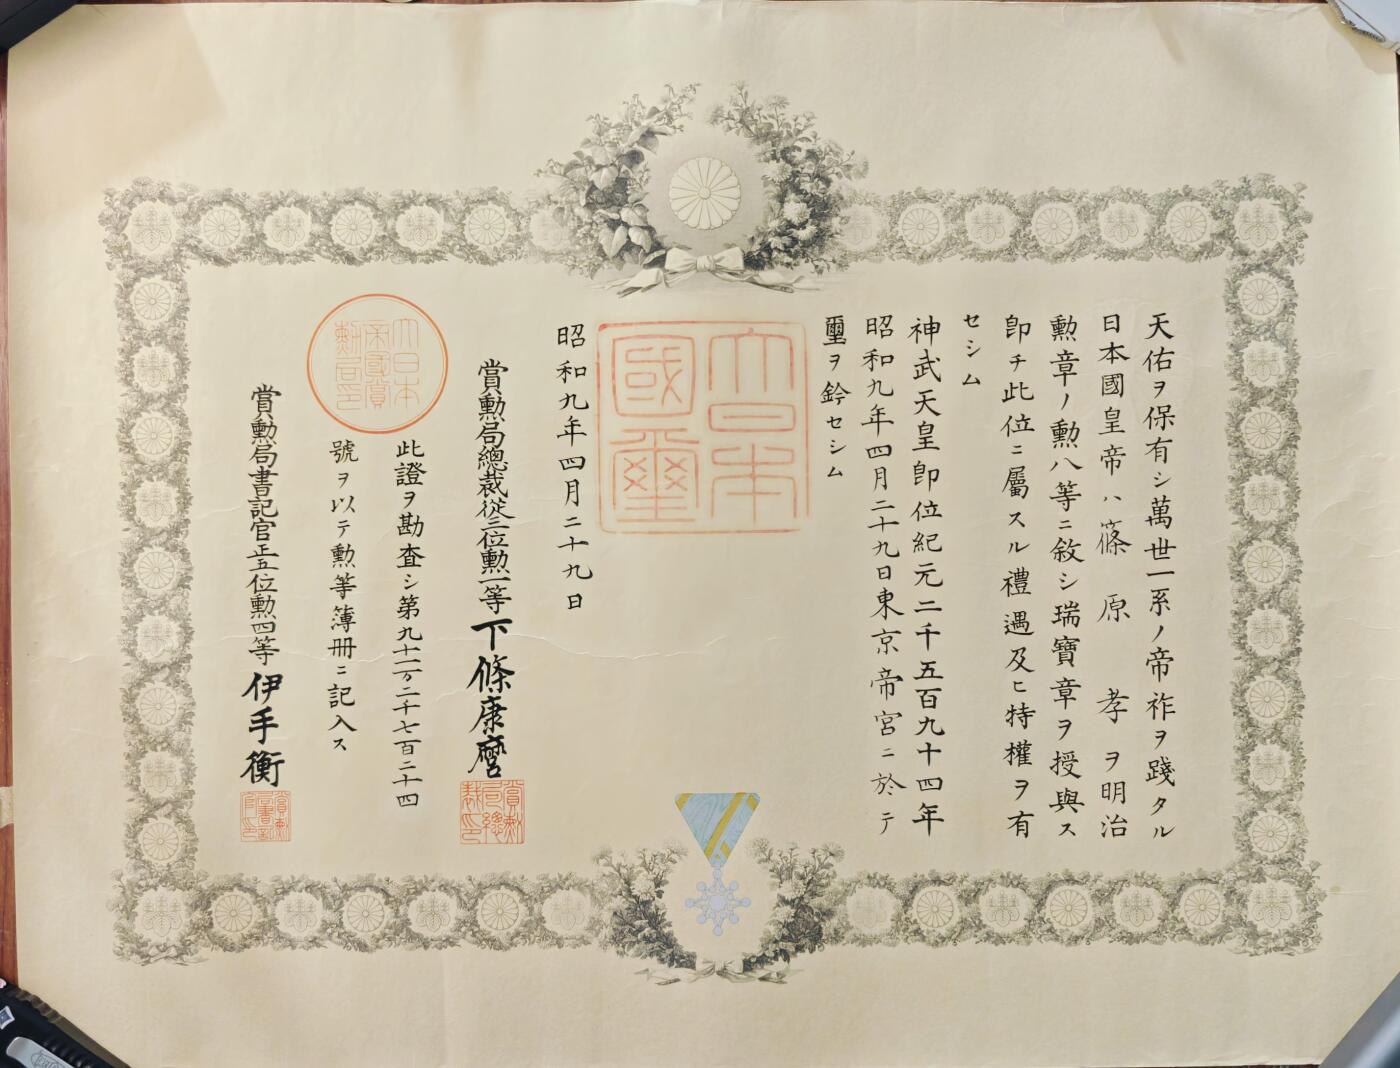 天佑ヲ保有シ萬世一系ノ帝祚ヲ踐タル
日本國皇帝ハ篠原孝ヲ明治
勲章ノ勲八等ニ敘シ瑞寶章ヲ授與ス
卽チ此位ニ屬スル禮遇及ヒ特權ヲ有
セシム
神武天皇卽位紀元二千五百九十四年
昭和九年四月二十九日東京帝宮ニ於テ
璽ヲ鈐セシム
大日本
國璽
昭和九年四月二十九日
賞勲局總裁從三位勲一等下條康麿
賞勲局總裁印
此證ヲ勘査シ第九十一万二千七百二十四
號ヲ以テ勲等簿册ニ記入ス
大日本帝國賞勲局印
賞勲局書記官正五位勲四等伊手衡
賞勲局書記官印